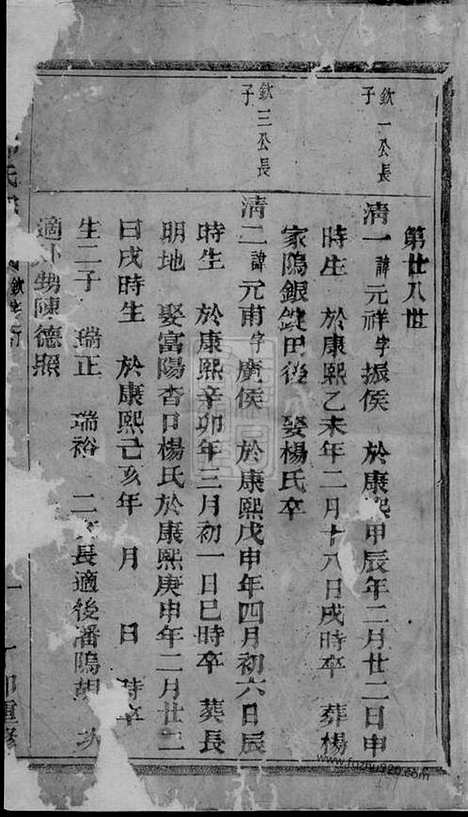 第廿八世
欽一公長
子
清一諱元祥字振侯 於康熙甲辰年二月廿二日申
時生 於康熙乙未年二月十八日戌時卒 葬楊
家隖銀錠田後 娶楊氏卒
欽三公長
子
清二諱元甫字廣侯 於康熙戊申年四月初六日辰
時生 於康熙辛卯年三月初一日巳時卒 葬長
明地 娶富陽杏口楊氏於康熙庚申年二月廿二
日戌時生 於康熙己亥年 月 日 時卒
生二子 瑞正 瑞裕 二 長適後潘隖胡 次
適 甥陳德照
重修
www.fuzhu920.com